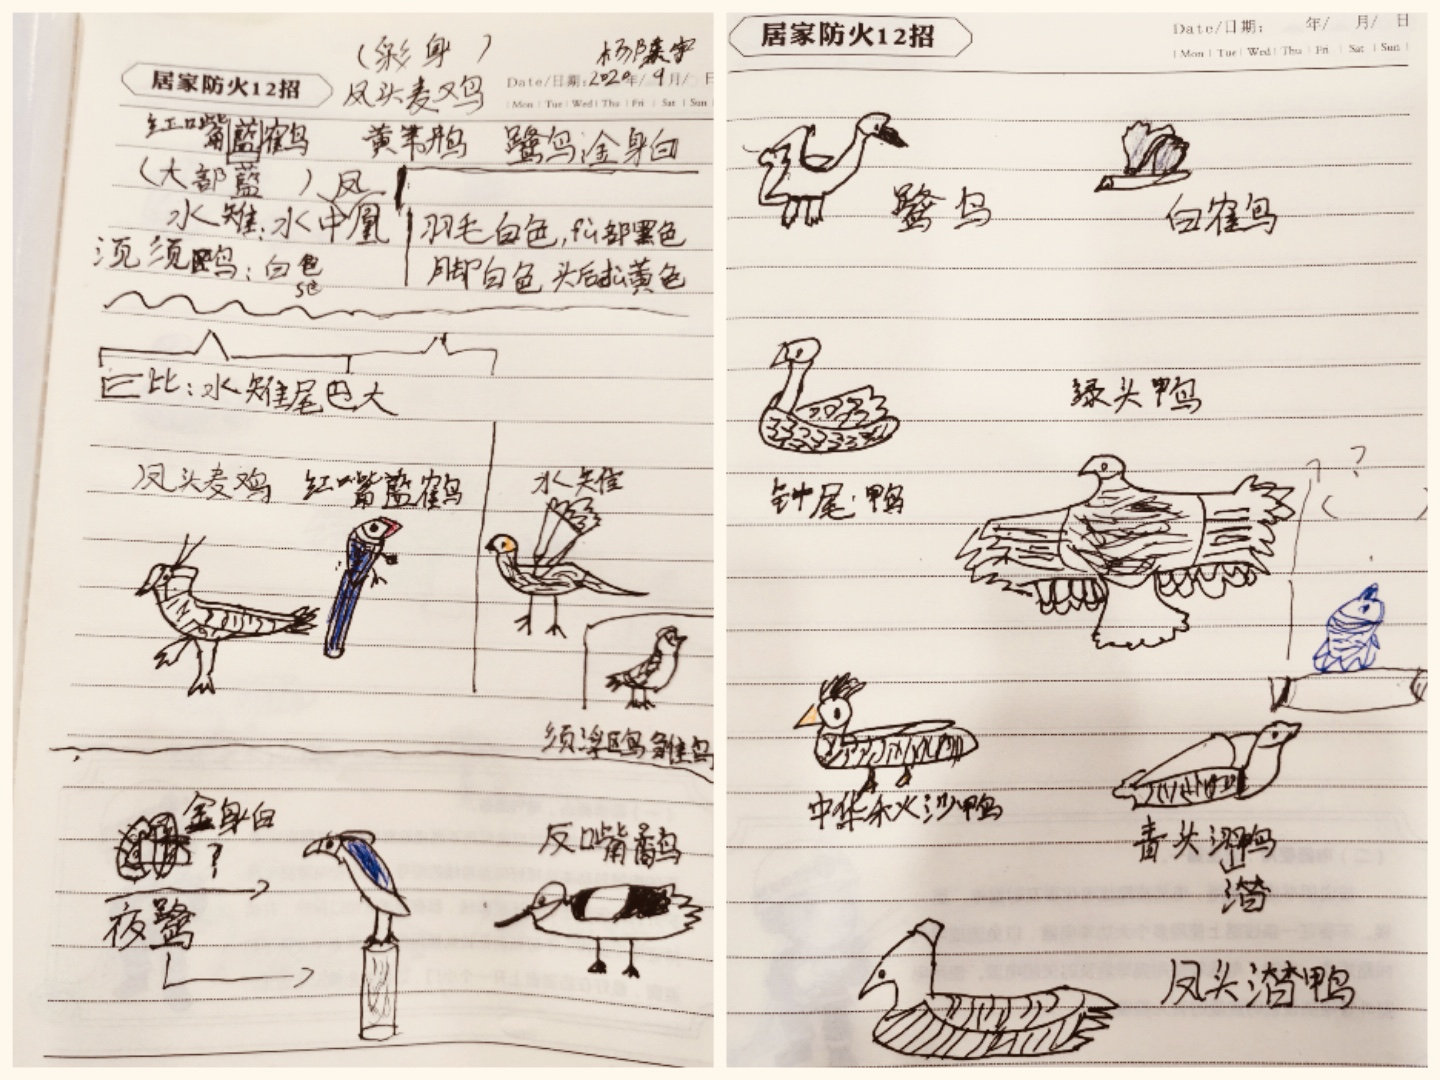 (彩身)
居家防火12招
凤头麦鸡
Date/日期:2020年/9月/ 日
Mon | Tue | Wed | Thu | Fri | Sat | Sun
红嘴蓝鹤
黄苇鳽
鹭鸟:全身白
(大部蓝)
水雉:水中凤凰
羽毛白色,
部黑色
:白色
脚白色 头后
黄色
比:水雉尾巴大
凤头麦鸡
红嘴蓝鹤
水雉
须浮鸥雏鸟
全身白
?
夜鹭
反嘴鹬
居家防火12招
Date/日期: 年/ 月/ 日
Mon | Tue | Wed | Thu | Fri | Sat | Sun
鹭鸟
白鹤鸟
绿头鸭
钟尾鸭
?
中华秋沙鸭
青头潜鸭
潜
凤头潜鸭